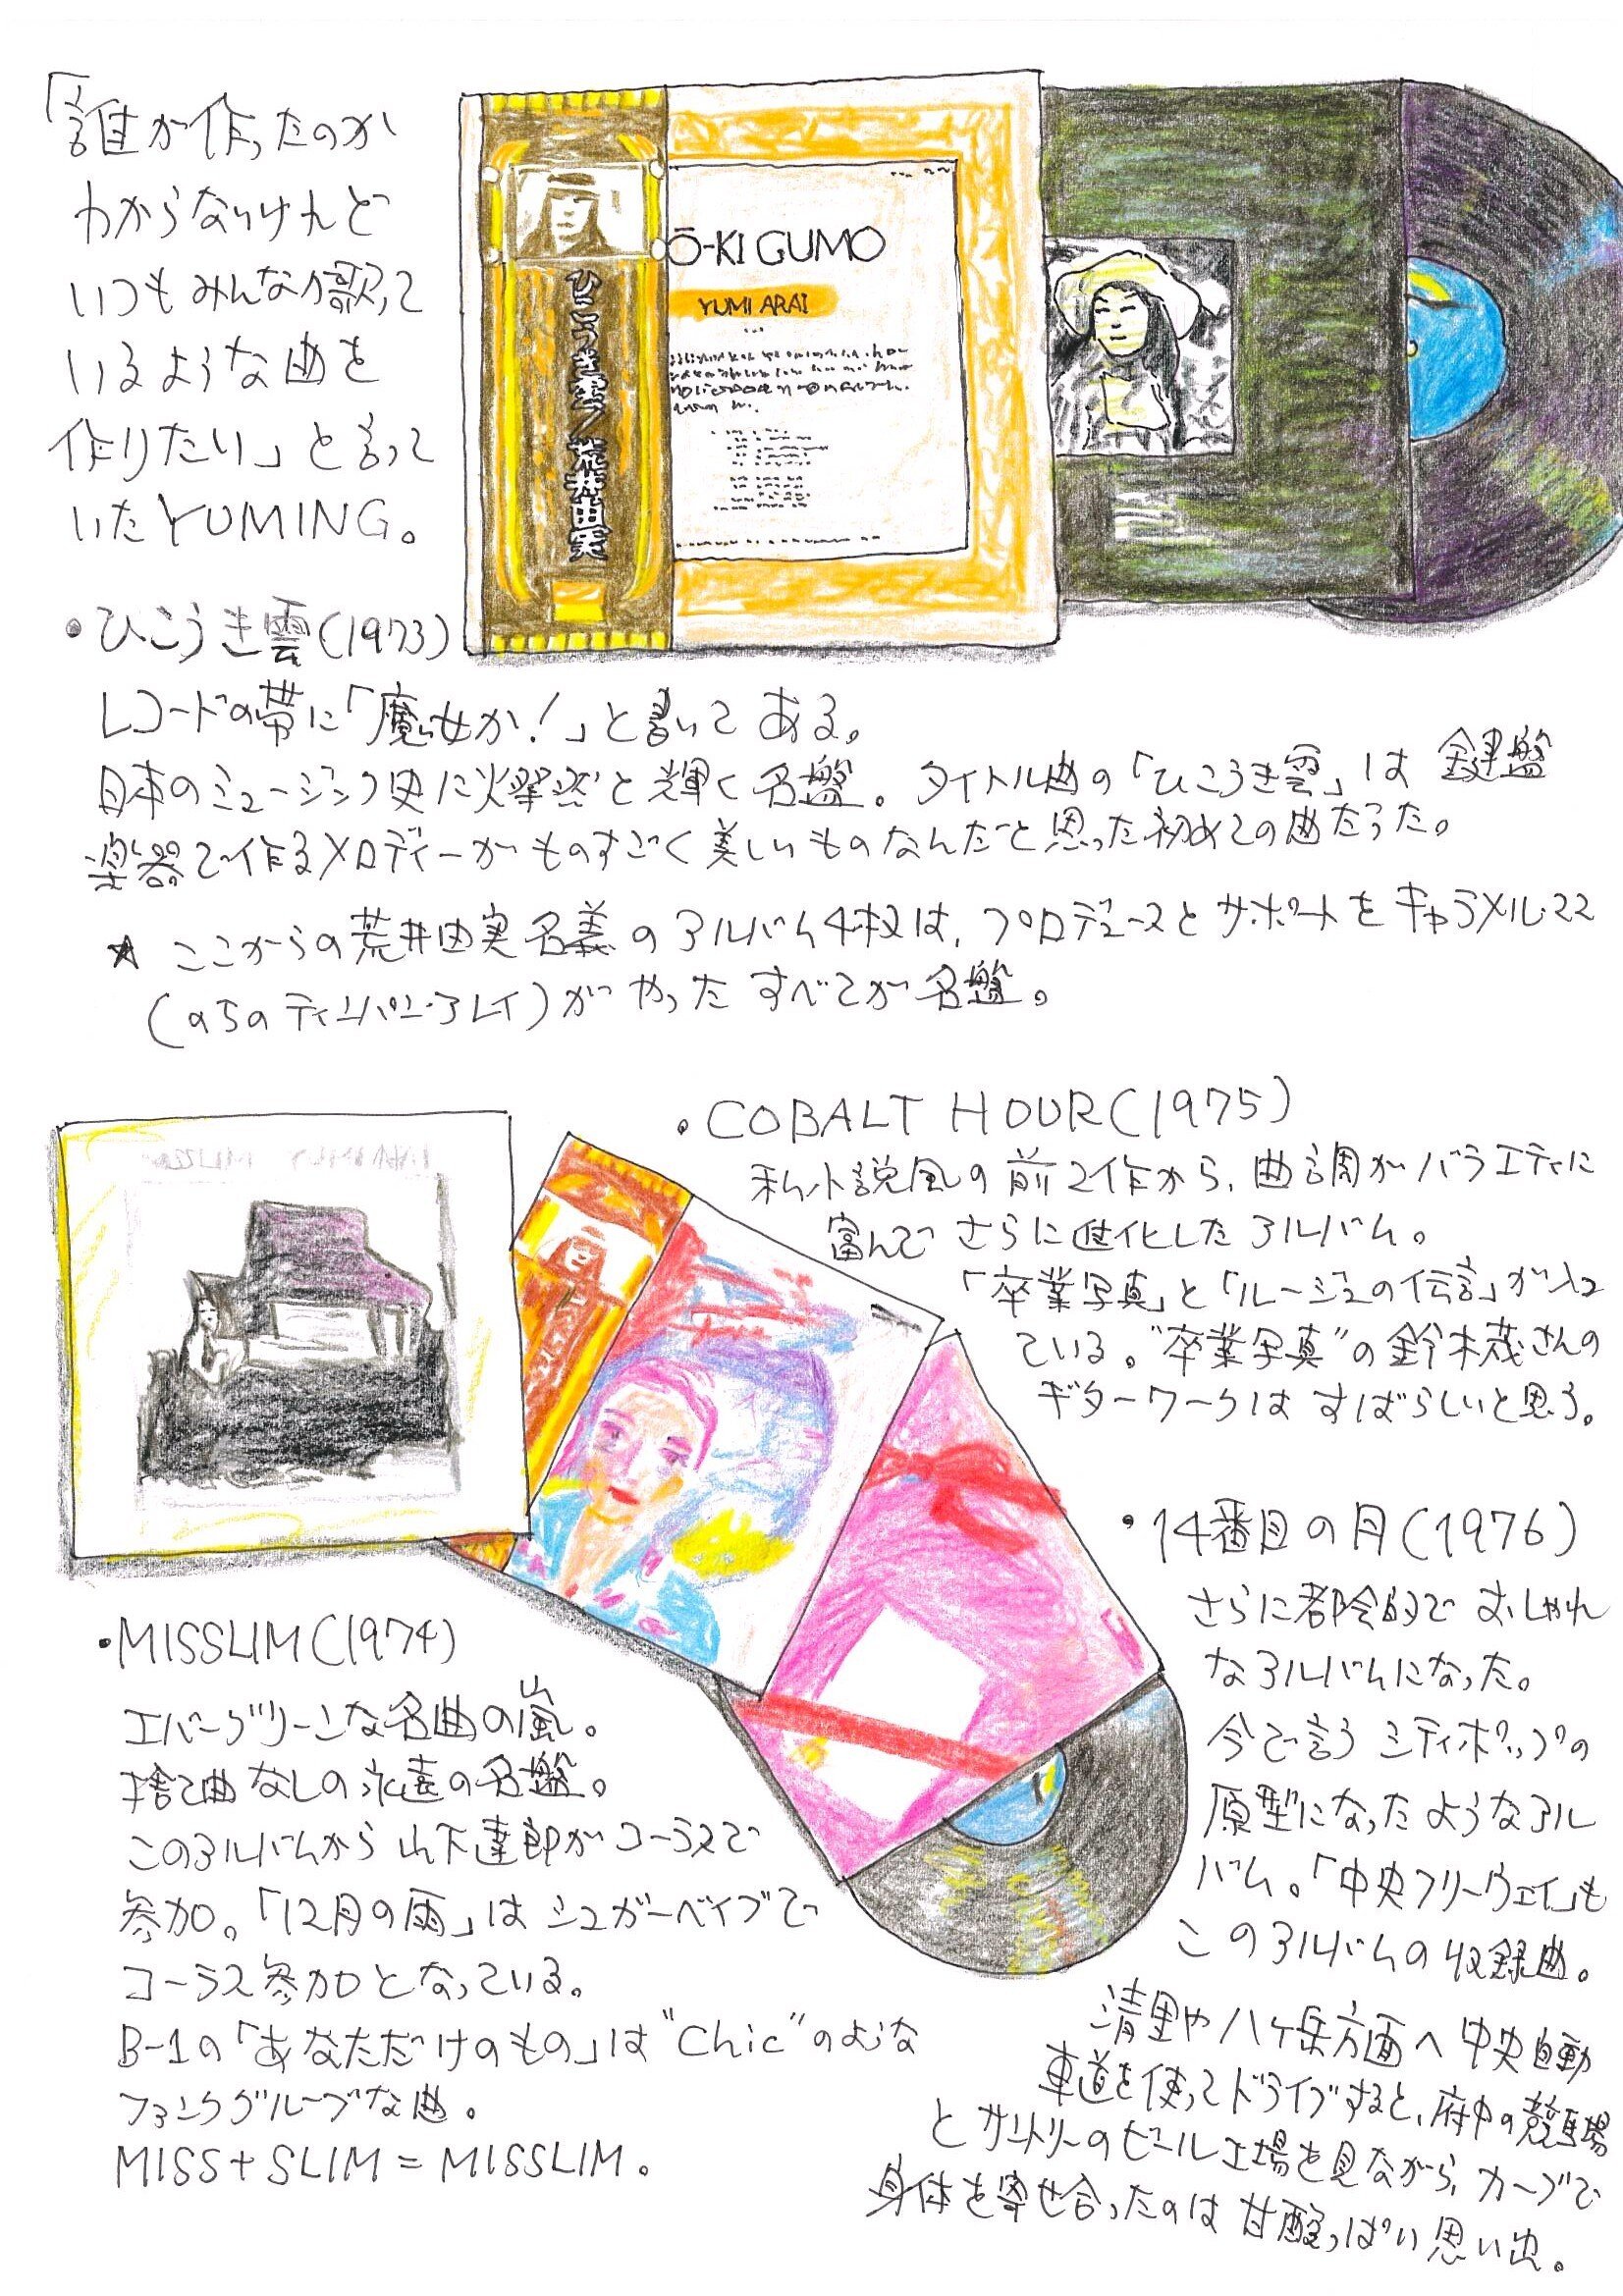 「誰が作ったのか
わからないけれど
いつもみんなが歌って
いるような曲を
作りたい」と言って
いたYUMING。
Ō-KI GUMO
YUMI ARAI
ひこうき雲/荒井由実
・ひこうき雲(1973)
レコードの帯に「魔女か!」と書いてある。
日本のミュージック史に燦然と輝く名盤。タイトル曲の「ひこうき雲」は鍵盤
楽器で作るメロディーがものすごく美しいものなんだと思った初めての曲だった。
★ここからの荒井由実名義のアルバム4枚は、プロデュースとサポートをキャラメル・ママ
(のちのティン・パン・アレイ)がやった すべてが名盤。
・COBALT HOUR(1975)
私小説風の前2作から、曲調がバラエティに
富んで さらに進化したアルバム。
「卒業写真」と「ルージュの伝言」が入っ
ている。"卒業写真"の鈴木茂さんの
ギターワークは すばらしいと思う。
・14番目の月(1976)
さらに都会的で おしゃれ
なアルバムになった。
今で言う シティポップの
原型になったようなアル
バム。「中央フリーウェイ」も
このアルバムの収録曲。
清里や八ヶ岳方面へ中央自動
車道を使ってドライブすると、府中の競馬場
とサントリーのビール工場を見ながら、カーブで
身体を寄せ合ったのは 甘酸っぱい思い出。
・MISSLIM(1974)
エバーグリーンな名曲の嵐。
捨て曲なしの永遠の名盤。
このアルバムから 山下達郎がコーラスで
参加。「12月の雨」はシュガーベイブで
コーラス参加となっている。
B-1の「あなただけのもの」は"Chic"のような
ファンクグルーブな曲。
MISS+SLIM=MISSLIM。